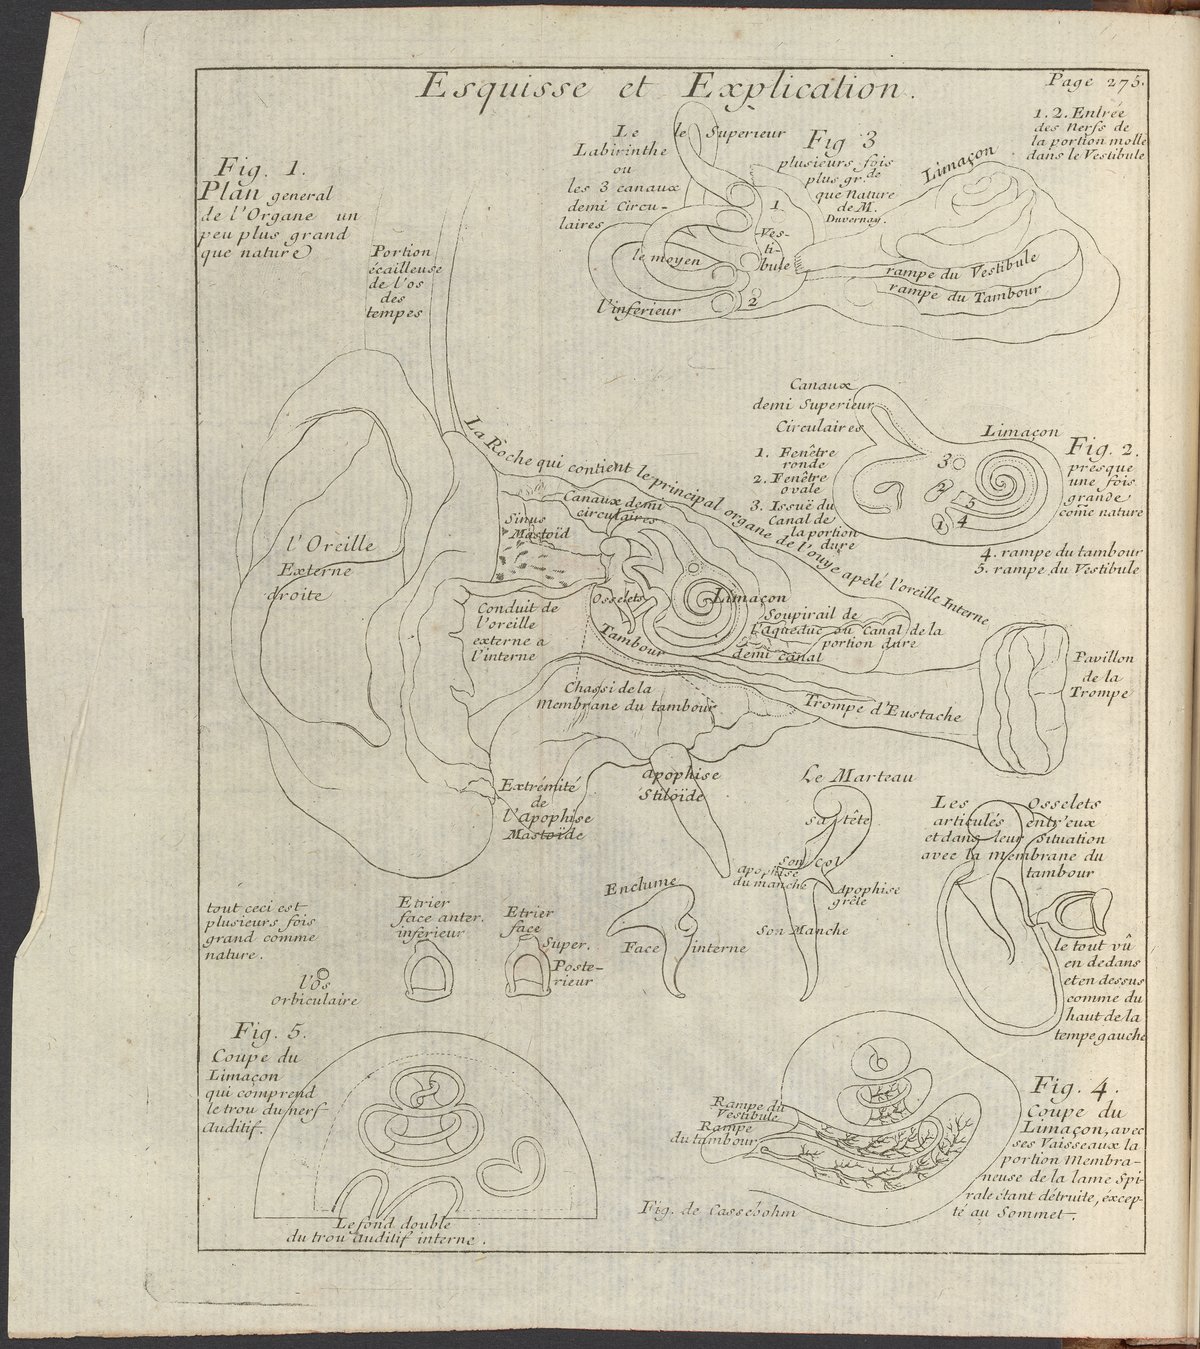 Esquisse et Explication.
Page 275.
Fig. 1.
Plan general
de l'Organe un
peu plus grand
que nature
Portion
écailleuse
de l'os
des
tempes
Le
Labirinthe
ou
les 3 canaux
demi Circu-
laires
le Superieur
le moyen
l'inferieur
Fig 3
plusieurs fois
plus gr.de
que Nature
de M.
Duvernay.
1
Ves-
ti-
bule
2
Limaçon
rampe du Vestibule
rampe du Tambour
1. 2. Entrée
des Nerfs de
la portion molle
dans le Vestibule
Canaux
demi Superieur
Circulaires
1. Fenêtre
ronde
2. Fenêtre
ovale
3. Issuë du
Canal de
la portion
dure
Limaçon
3
2
1
5
4
Fig. 2.
presque
une fois
grande
come nature
4. rampe du tambour
5. rampe du Vestibule
La Roche qui contient le principal organe de l'ouye apelé l'oreille Interne
Canaux demi
circulaires
Sinus
Mastoïd
l'Oreille
Externe
droite
Conduit de
l'oreille
externe a
l'interne
Osselets
Limaçon
Tambour
Soupirail de
l'aqueduc ou Canal de la
portion dure
demi canal
Chassi de la
Membrane du tambour
Trompe d'Eustache
Pavillon
de la
Trompe
Extrémité
de
l'Apophise
Mastoïde
apophise
Stiloïde
Le Marteau
sa tête
Son Col
apophise
du manche
Apophise
grêle
Son Manche
Les Osselets
articulés entr'eux
et dans leur situation
avec la Membrane du
tambour
le tout vû
en dedans
et en dessus
comme du
haut de la
tempe gauche
tout ceci est
plusieurs fois
grand comme
nature.
l'Os
orbiculaire
Etrier
face anter.
inferieur
Etrier
face
Super.
Poste-
rieur
Enclume
Face interne
Fig. 5.
Coupe du
Limaçon
qui comprend
le trou du nerf
Auditif.
Le fond double
du trou auditif interne.
Rampe du
Vestibule
Rampe
du tambour
Fig. de Cassebohm
Fig. 4.
Coupe du
Limaçon, avec
ses Vaisseaux la
portion Membra-
neuse de la lame Spi-
rale étant détruite, excep-
té au Sommet.